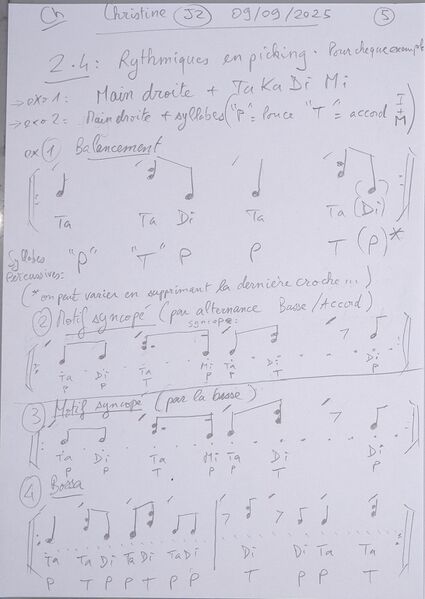 Ch Christine J2 09/09/2025 5
2.4: Rythmiques en picking. Pour chaque exemple
→ exo 1: Main droite + Ta Ka Di Mi
→ exo 2: Main droite + syllabes ("P" = Pouce "T" = accord I+M)
ex 1 Balancement
Ta Ta Di Ta Ta (Di)
Syllabes Percussives: "P" "T" P P T (P)*
(* on peut varier en supprimant la dernière croche ...)
2 Motif syncopé (par alternance Basse/Accord)
syncope:
Ta Di Ta Mi Ta Di Di
P P T P P T P
3 Motif syncopé (par la basse)
Ta Di Ta Mi Ta Di Di
P P T P P T T
4 Bossa
Ta Ta Di Ta Di Ta Di Di Di Ta Ta
P T P P T P P T P P T